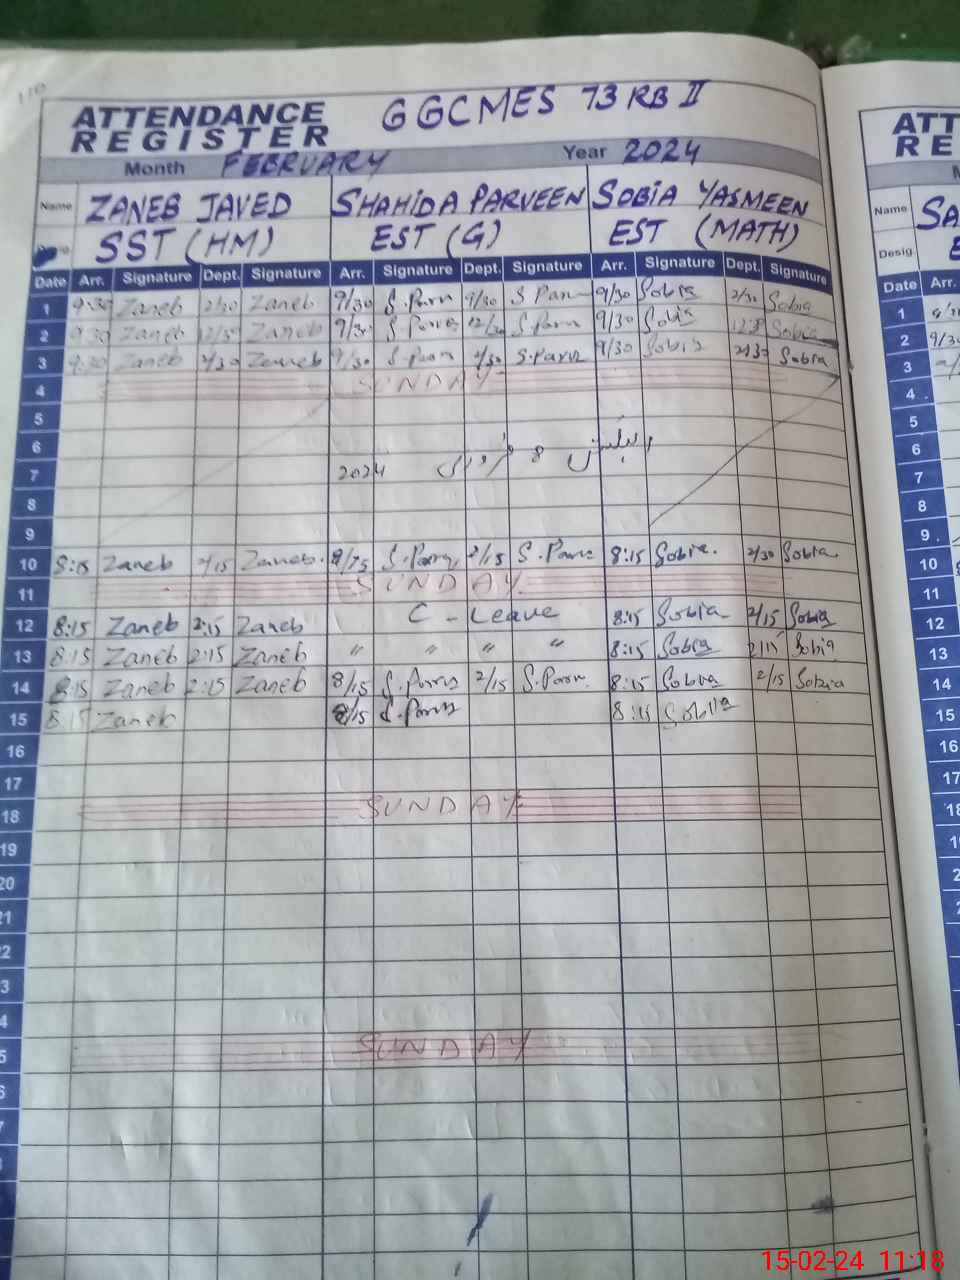 110
ATTENDANCE REGISTER GGCMES 73 RB II
Month FEBRUARY Year 2024
Name ZANEB JAVED SHAHIDA PARVEEN SOBIA YASMEEN
SST (HM) EST (G) EST (MATH)
Date Arr. Signature Dept. Signature Arr. Signature Dept. Signature Arr. Signature Dept. Signature
1 9:30 Zaneb 2/30 Zaneb 9/30 S.Parn 9/30 S Pan 9/30 Sobia 2/30 Sobia
2 9:30 Zaneb 12/30 Zaneb 9/30 12/30 S.Parn 9/30 Sobia Sobia
3 9:30 Zaneb 2/30 Zaneb 9/30 2/30 9/30 Sobia 2:30 Sobia
4 SUNDAY
5
6 الیکشن 8 فروری
7 2024
8
9
10 8:15 Zaneb 2/15 Zaneb. 2/15 8:15 Sobia. 2/30 Sobia
11 SUNDAY
12 8:15 Zaneb 2:15 Zaneb C - Leave 8:15 Sobia 2/15 Sobia
13 8:15 Zaneb 2:15 Zaneb " " " " 8:15 Sobia 2/15 Sobia
14 8:15 Zaneb 2:15 Zaneb 8/15 2/15 8:15 Sobia 2/15 Sobia
15 8:15 Zaneb 8/15 8:15 Sobia
16
17
18 SUNDAY
19
20
21
2
3
4
5 SUNDAY
6
ATT
RE
Name SA
Desig.
Date Arr.
1
2 9/30
3
4
5
6
7
8
9
10
11
12
13
14
15
16
17
18
15-02-24 11:18